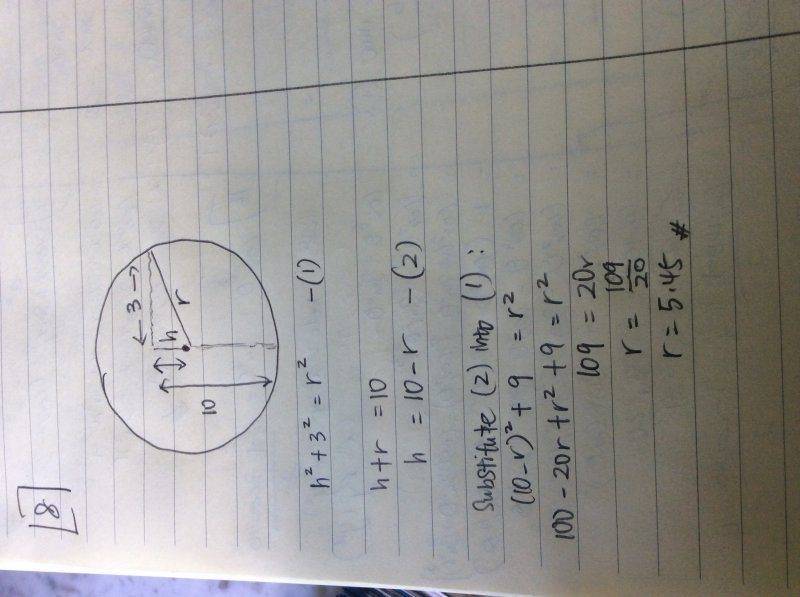 8
3
h
r
10
h² + 3² = r² - (1)
h + r = 10
h = 10 - r - (2)
Substitute (2) into (1) :
(10 - r)² + 9 = r²
100 - 20r + r² + 9 = r²
109 = 20r
r = 109/20
r = 5.45 #